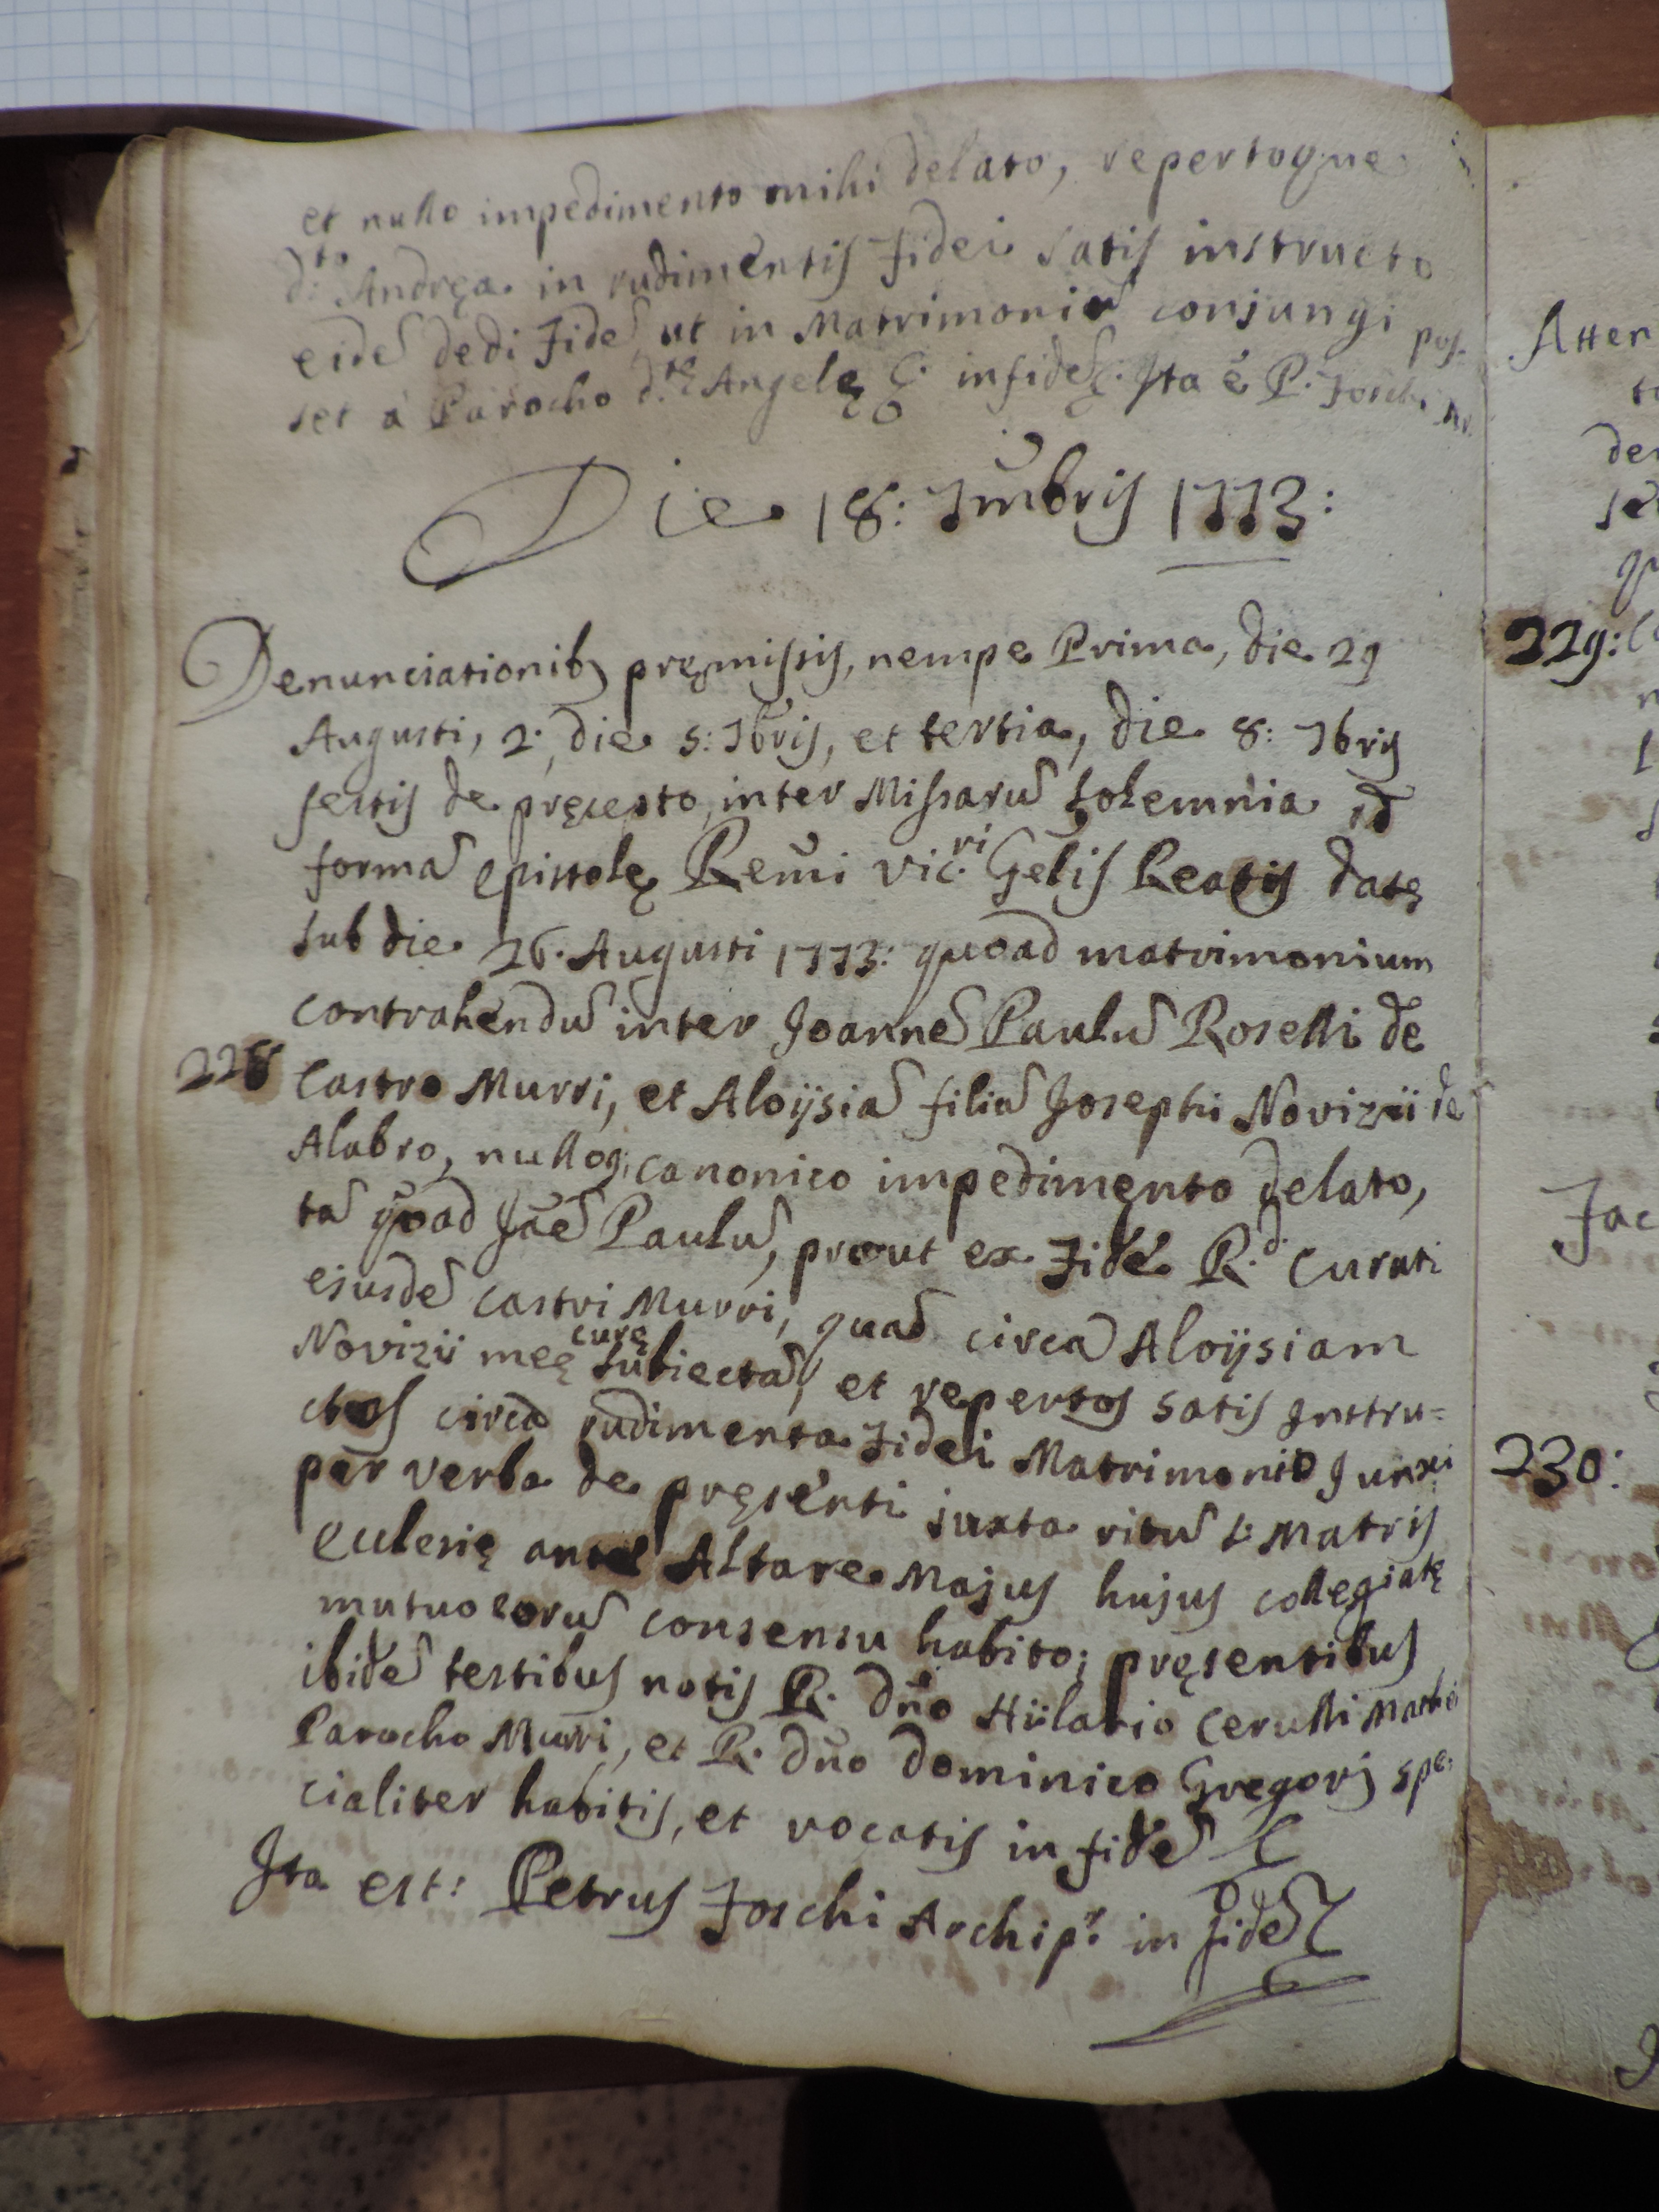 et nullo impedimento mihi delato, repertoque
d.to Andręa in rudimentis Fidei satis instructo
eidẽ dedi Fidẽ ut in Matrimoniũ conjungi pos-
set à Parocho d.tę Angelę & in fidẽ &. Ita è P. Foschi
Die 18: 7m̃bris 1773:
Denunciationibȝ pręmissis, nempe Prima, die 29
Augusti, 2., die 5: 7b̃ris, et tertia, die 8: 7bris
festis de pręcepto, inter Missarũ solemnia, id
formã epistolę Rem̃i vic.ri Gelis Reatis datę
sub die 26. Augusti 1773: quoad matrimonium
contrahendũ inter Joannẽ Paulũ Roselli de
228 Castro Murri, et Aloÿsiã filiã Josephi Novizii de
Alabro, nulloq; canonico impedimento delato,
tã quoad Jõẽ Paulũ, prout ex Fide R.d Curati
eiusdẽ Castri Murri, quã circa Aloÿsiam
Novizii meę curę subiectã, et repertos satis Instru=
ctos circa rudimenta Fidei Matrimonio Junxi
per verba de pręsenti juxta ritũ S: Matris
Ecclesię ante Altare Majus hujus collegiatę
mutuo eorũ consensu habito; pręsentibus
ibidẽ testibus notis R. Dño Hilario Cerulli Mathei
Parocho Murri, et R. Dño Dominico Gregorj spe:
cialiter habitis, et vocatis in fidẽ &
Ita est: Petrus Foschi Archip.r in fidẽ &
Atten
to
der
set
qu
229:
Jac
230: